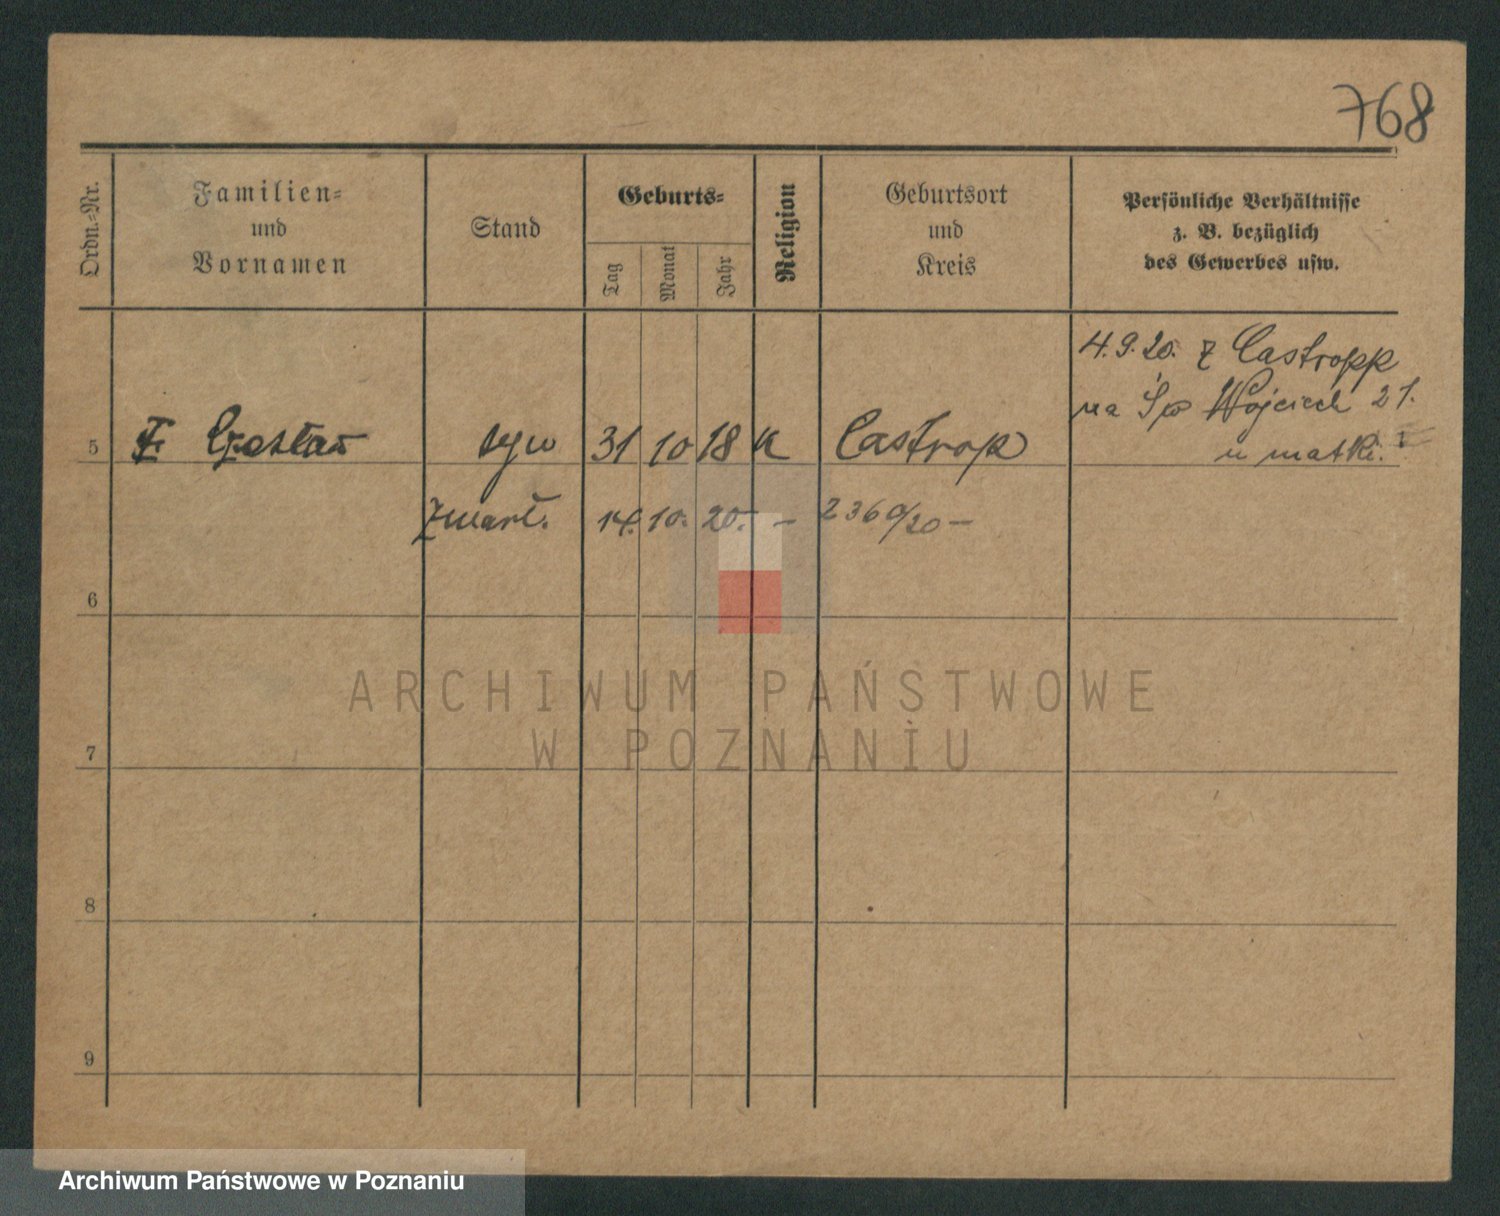 768
Ordn.-Nr.
Familien-
und
Vornamen
Stand
Geburts-
Tag
Monat
Jahr
Religion
Geburtsort
und
Kreis
Persönliche Verhältnisse
z. B. bezüglich
des Gewerbes usw.
4.9.20. z Castropp
na Św Wojciech 21.
u matki.
5 Czesław syn 31 10 18 K Castrop
Zmarł. 14. 10. 20. – 2360/20 –
6
ARCHIWUM PAŃSTWOWE
W POZNANIU
7
8
9
Archiwum Państwowe w Poznaniu